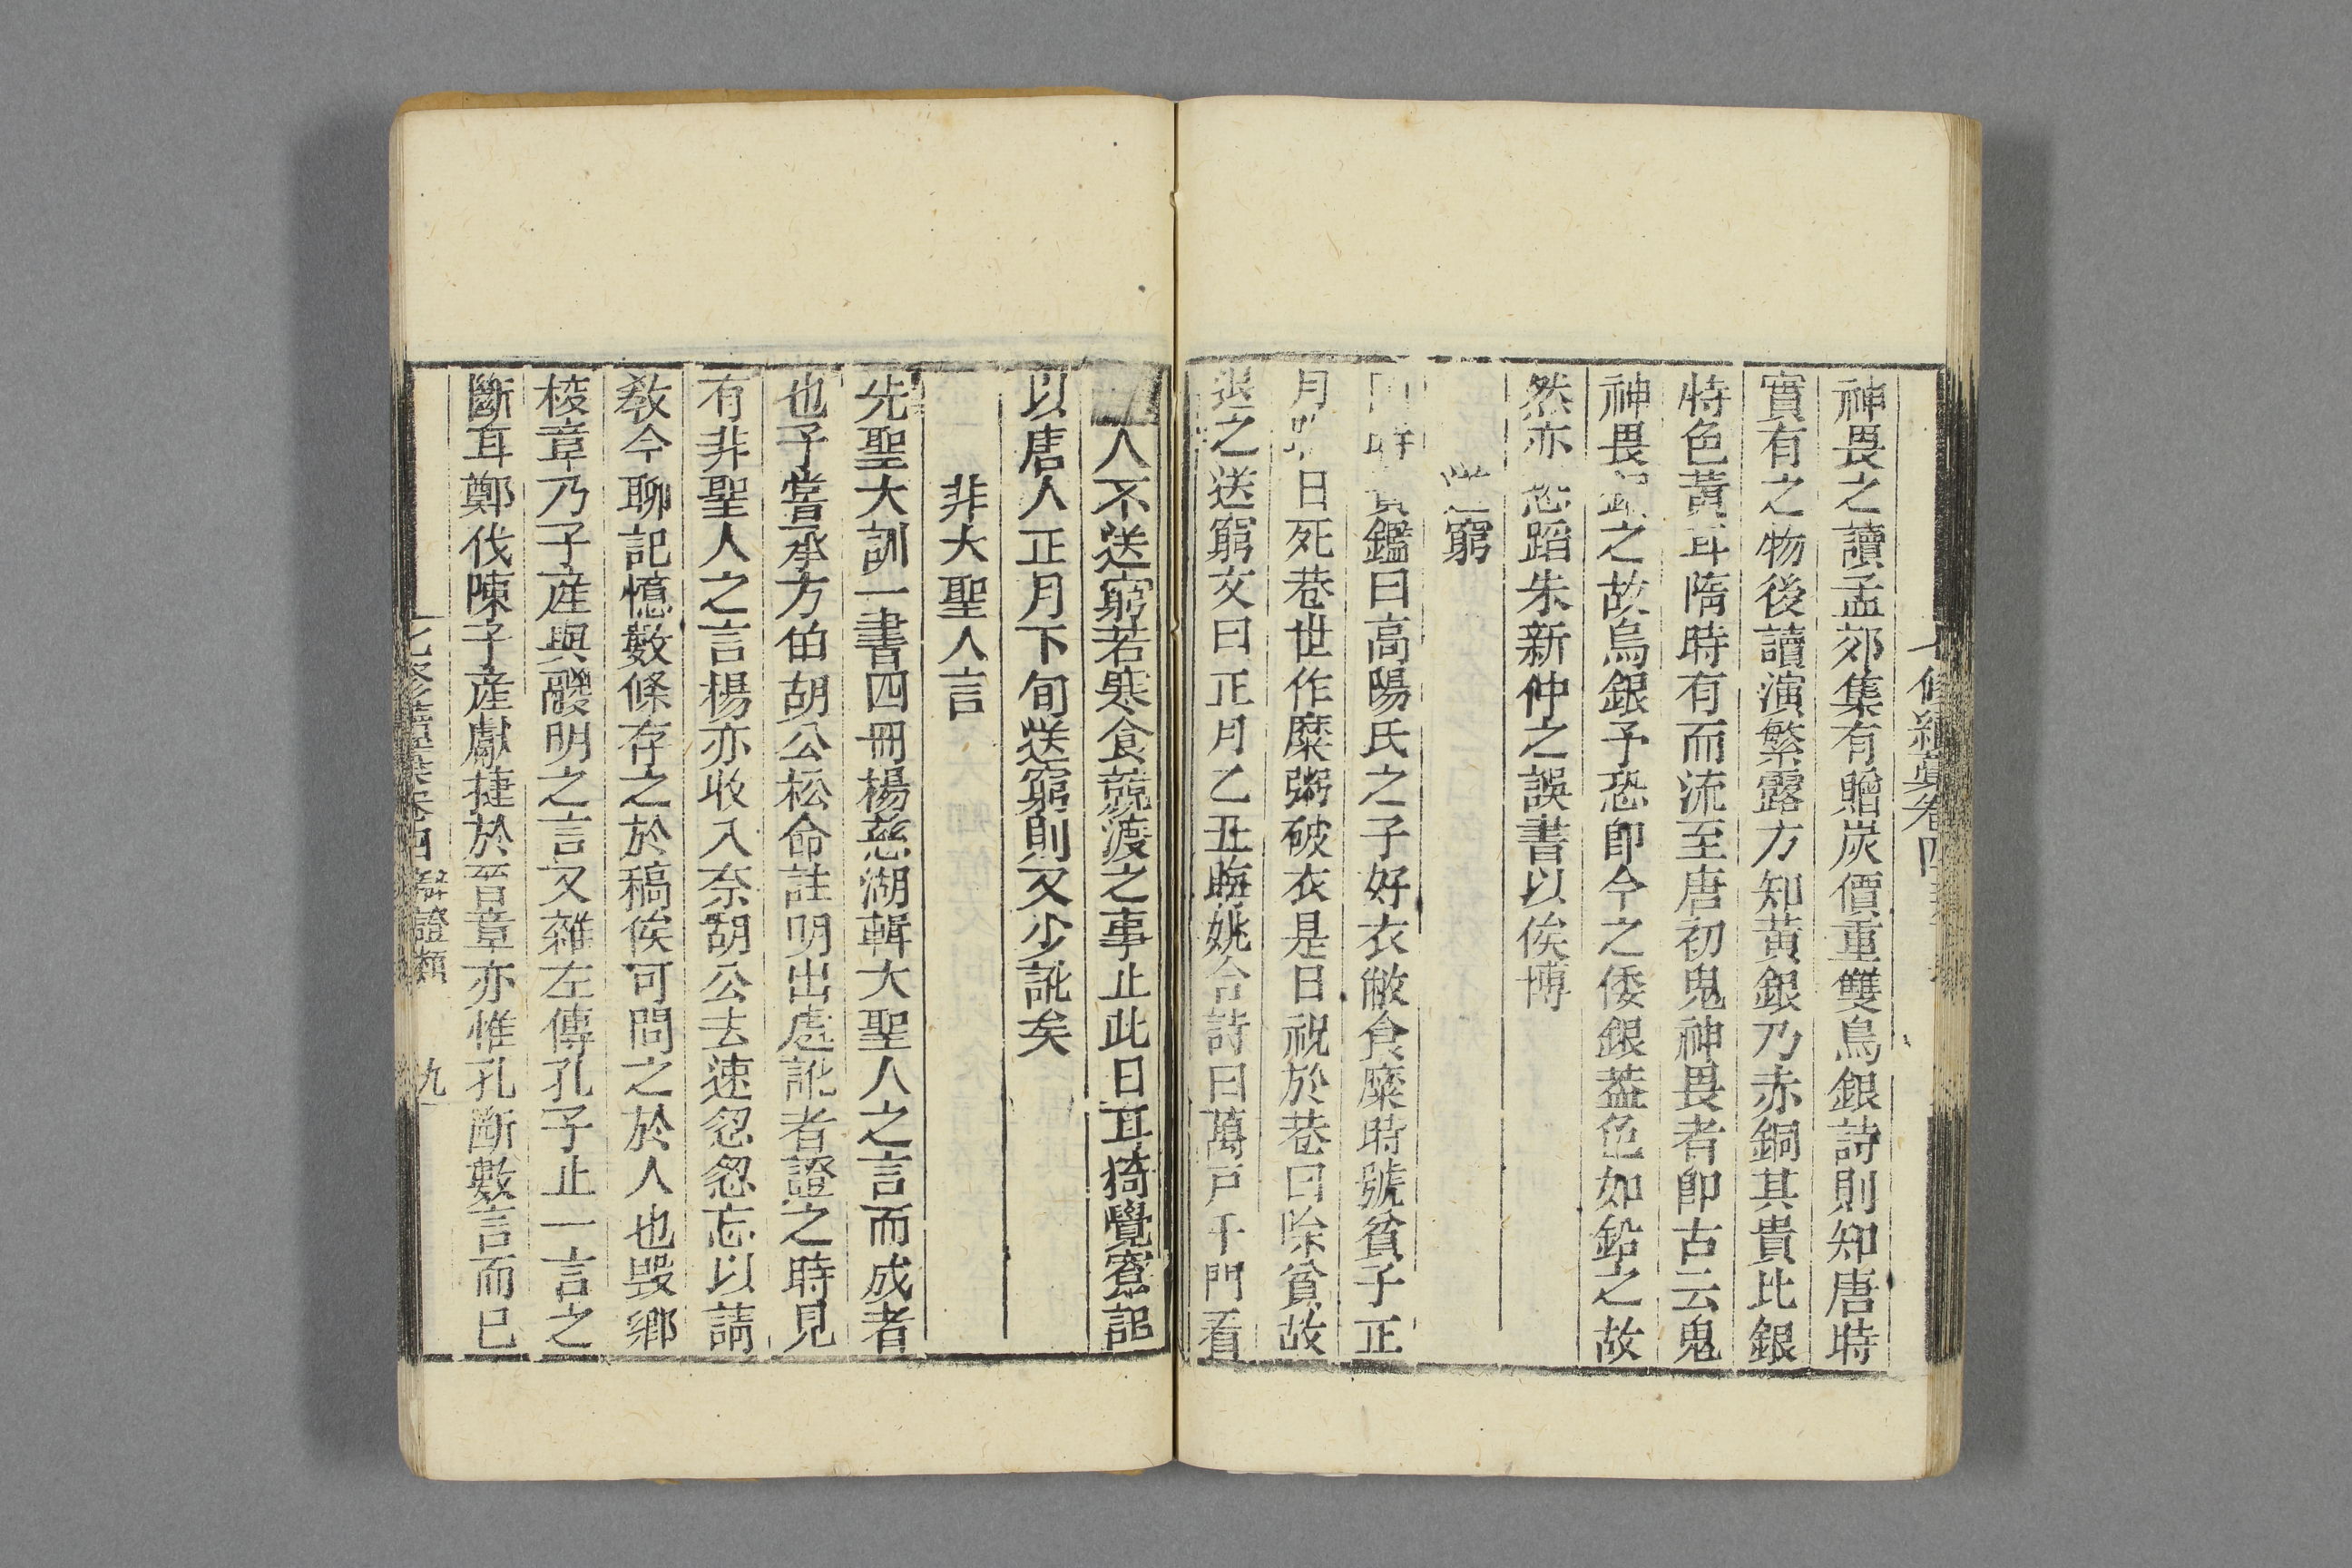 神畏之讀孟郊集有贈炭價重雙烏銀詩則知唐時
實有之物後讀演繁露方知黃銀乃赤銅其貴比銀
特色黃耳隋時有而流至唐初鬼神畏者卽古云鬼
神畏銀之故烏銀予恐卽今之倭銀葢色如鉛之故
然亦恐蹈朱新仲之誤書以俟博
送窮
時寶鑑曰高陽氏之子好衣敝食糜時號貧子正
月日死巷世作糜粥破衣是日祝於巷曰除貧故
退之送窮文曰正月乙丑晦姚合詩曰萬戶千門看
人不送窮若寒食競渡之事止此日耳猗覺寮記
以唐人正月下旬送窮則又少訛矣
非大聖人言
先聖大訓一書四冊楊慈湖輯大聖人之言而成者
也予嘗承方伯胡公松命註明出處訛者證之時見
有非聖人之言楊亦收入奈胡公去速忽忽忘以請
教今聊記憶數條存之於稿俟可問之於人也毀鄉
校章乃子產與鬷明之言又雜左傳孔子止一言之
斷耳鄭伐陳子產獻捷於晉章亦惟孔斷數言而已
七修續藁卷四 辯證類 九